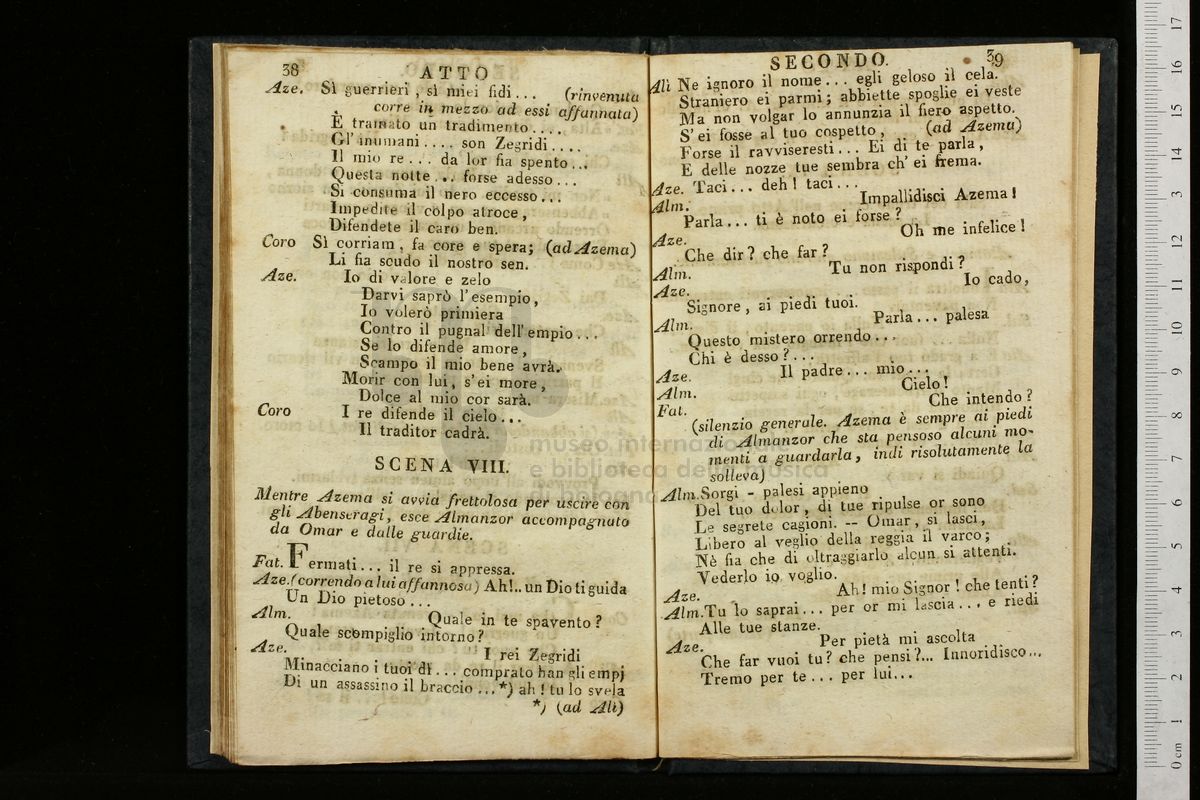 38
ATTO
Aze. Sì guerrieri, sì miei fidi... (rinvenuta
corre in mezzo ad essi affannata)
È tramato un tradimento....
Gl' inumani.... son Zegridi....
Il mio re... da lor fia spento...
Questa notte... forse adesso...
Si consuma il nero eccesso...
Impedite il colpo atroce,
Difendete il caro ben.
Coro Sì corriam, fa core e spera; (ad Azema)
Li fia scudo il nostro sen.
Aze. Io di valore e zelo
Darvi saprò l'esempio,
Io volerò primiera
Contro il pugnal dell'empio...
Se lo difende amore,
Scampo il mio bene avrà.
Morir con lui, s'ei more,
Dolce al mio cor sarà.
Coro I re difende il cielo...
Il traditor cadrà.
SCENA VIII.
Mentre Azema si avvia frettolosa per uscire con
gli Abenseragi, esce Almanzor accompagnato
da Omar e dalle guardie.
Fat. Fermati... il re si appressa.
Aze. (correndo a lui affannosa) Ah!.. un Dio ti guida
Un Dio pietoso...
Alm. Quale in te spavento?
Quale scompiglio intorno?
Aze. I rei Zegridi
Minacciano i tuoi dì... comprato han gli empj
Di un assassino il braccio...*) ah! tu lo svela
*) (ad Alì)
SECONDO.
39
Alì Ne ignoro il nome... egli geloso il cela.
Straniero ei parmi; abbiette spoglie ei veste
Ma non volgar lo annunzia il fiero aspetto.
S'ei fosse al tuo cospetto, (ad Azema)
Forse il ravviseresti... Ei di te parla,
E delle nozze tue sembra ch'ei frema.
Aze. Taci... deh! taci...
Alm. Impallidisci Azema!
Parla... ti è noto ei forse?
Aze. Oh me infelice!
Che dir? che far?
Alm. Tu non rispondi?
Aze. Io cado,
Signore, ai piedi tuoi.
Alm. Parla... palesa
Questo mistero orrendo...
Chi è desso?...
Aze. Il padre... mio...
Alm. Cielo!
Fat. Che intendo?
(silenzio generale. Azema è sempre ai piedi
di Almanzor che sta pensoso alcuni mo-
menti a guardarla, indi risolutamente la
solleva)
Alm. Sorgi - palesi appieno
Del tuo dolor, di tue ripulse or sono
Le segrete cagioni. -- Omar, si lasci,
Libero al veglio della reggia il varco;
Nè fia che di oltraggiarlo alcun si attenti.
Vederlo io voglio.
Aze. Ah! mio Signor! che tenti?
Alm. Tu lo saprai... per or mi lascia... e riedi
Alle tue stanze.
Aze. Per pietà mi ascolta
Che far vuoi tu? che pensi?... Innoridisco...
Tremo per te... per lui...
museo internazionale
e biblioteca della musica
di bologna
0 cm 1 2 3 4 5 6 7 8 9 10 11 12 13 14 15 16 17